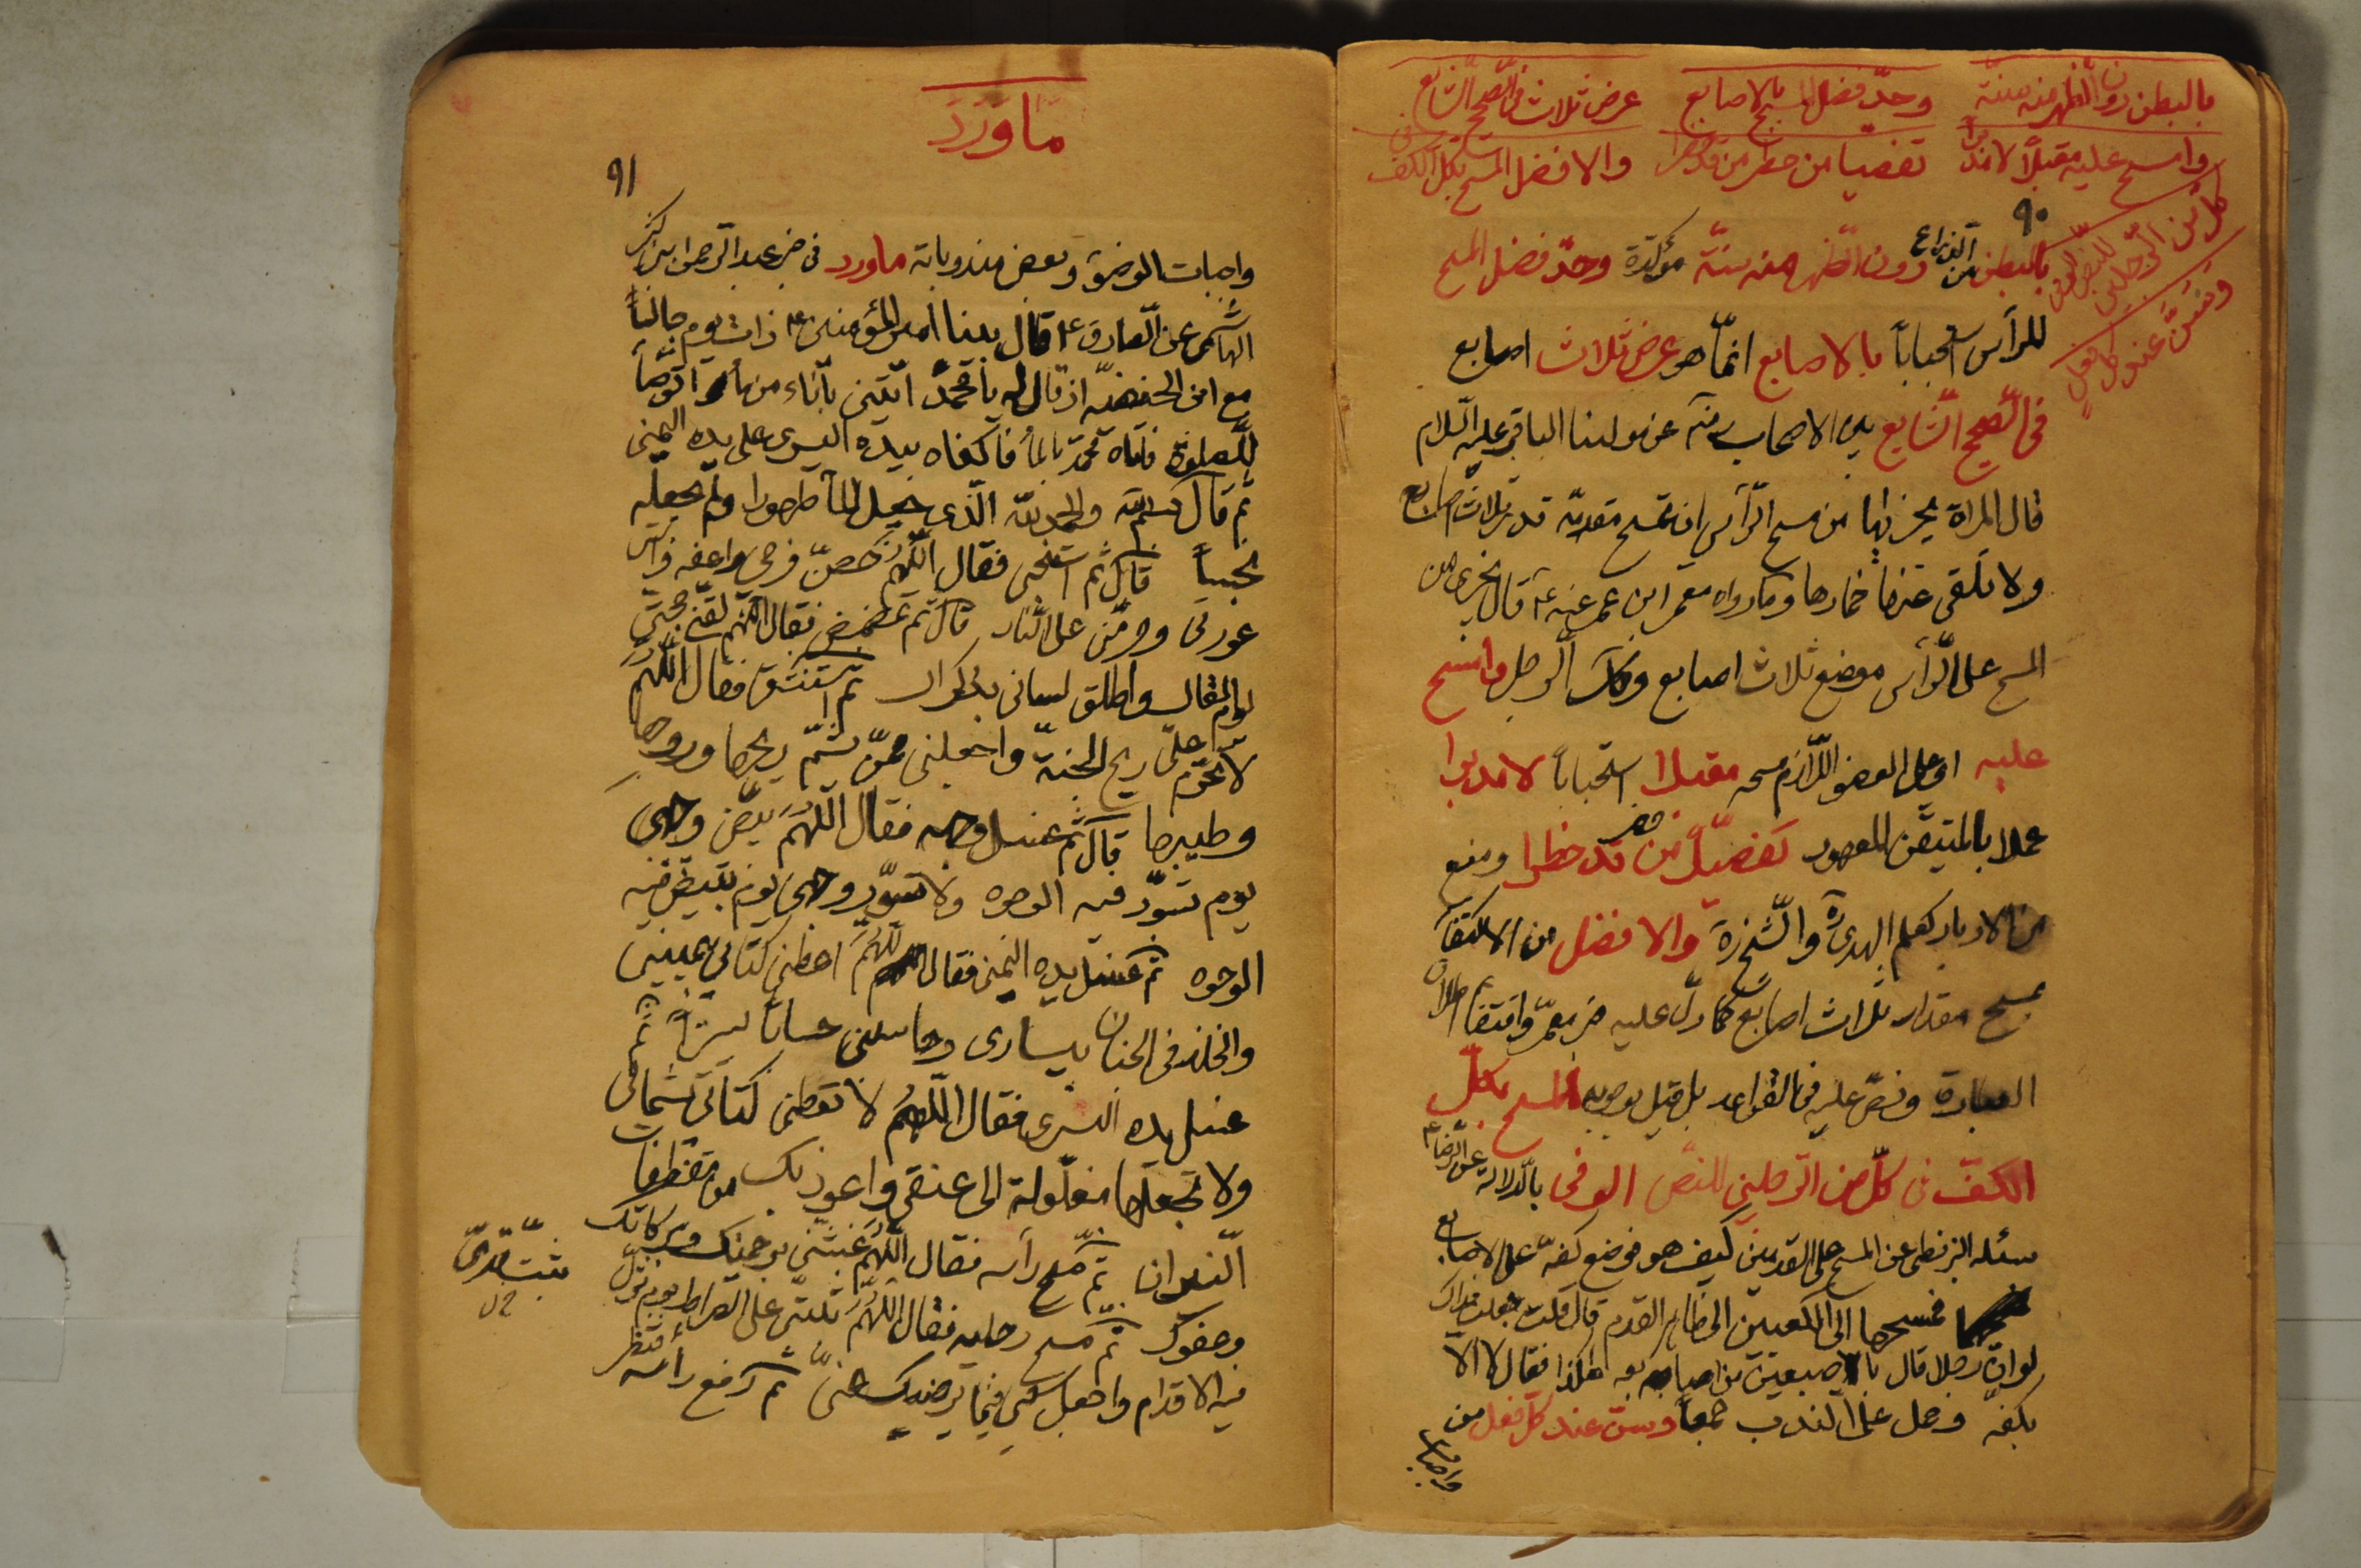 بالبطن دون الظهر منه سنّة وحدّ فضل المسح بالاصابع عرض ثلاث فى الصّحيح الشّايع
وامسح عليه مقبلًا لا مدبرا تفصّيا من حظر من قد حظرا والافضل المسح بكلّ الكفّ فى
كلّ من الرّجلين للنصّ الوفى
وسنّ عند كلّ فعل
٩٠
بالبطن من الذراع دون الظّهر منه سنّة مؤكّدة وحدّ فضل المسح
للرأس استحباباً بالاصابع انمّا هو عرض ثلاث اصابع
فى الصّحيح الشّايع بين الاصحاب عن مولينا الباقر عليه السّلام
قال المراة يجزيها من مسح الرّأس ان تمسح مقدمه قدر ثلاث اصابع
ولا تلقى عنها خمارها وما رواه معمر ابن عمر عنه ع قال يجزى من
المسح على الرّأس موضع ثلاث اصابع وكذلك الرجل وامسح
عليه اى على العضو اللّازم مسحه مقبلا استحباباً لا مدبرا
عملا بالمتيقّن المعهود تفصّياً من حظر من قد حظرا ومنع
من الادبار كعلم الهدى والشّيخ والافضل من الاكتفآء
بمسح مقدار ثلاث اصابع كما دلّ عليه خبر معمر واقتضاه اطلاق
العبارة ونصّ عليه فى القواعد بل قيل بوجوبه المسح بكلّ
الكفّ فى كلّ من الرّجلين للنصّ الوفى بالدّلالة عن الرّضا ع
سئله البزنطى عن المسح على القدمين كيف هو فوضع كفّه على الاصابع
فمسحها الى الكعبين الى ظاهر القدم قال قلت جعلت فداك
لو انّ رجلا قال باصبعين من اصابعه هكذا فقال لا الّا
بكفّه وحمل على الندب جمعاً وسنّ عند كلّ فعل من
واجبات
ما ورد
٩١
واجبات الوضوء وبعض مندوباته ماورد فى خبر عبد الرّحمن ابن كثير
الهاشمى عن الصّادق ع قال بينا امير المؤمنين ع ذات يوم جالساً
مع ابن الحنفيّة اذ قال له يا محمّد ائتنى بآناء من مآء اتوضّأ
للصلوة فاتاه محمّد بالمآء فاكفاه بيده اليسرى على يده اليمنى
ثم قال بسم الله والحمد لله الّذى جعل المآء طهورا ولم يجعله
نجساً قال ثم استنجى فقال اللّهمّ حصّن فرجى واعفه واستر
عورتى وحرّمنى على النّار قال ثم تمضمض فقال اللّهمّ لقّنى حجّتى
يوم القاك واطلق لسانى بذكراك ثم استنشق فقال اللّهمّ
لا تحرّم علىّ ريح الجنّة واجعلنى ممّن يشمّ ريحها وروحها
وطيبها قال ثم غسل وجهه فقال اللّهمّ بيّض وجهى
يوم تسوّد فيه الوجوه ولا تسوّد وجهى يوم تبيّض فيه
الوجوه ثم غسل يده اليمنى فقال اللّهمّ اعطنى كتابى بيمينى
والخلد فى الجنان بيسارى وحاسبنى حساباً يسيراً ثم
غسل يده اليسرى فقال اللّهمّ لا تعطنى كتابى بشمالى
ولا تجعلها مغلولة الى عنقى واعوذ بك من مقطعات
النّيران ثم مسح رأسه فقال اللّهمّ غشّنى برحمتك وبركاتك
وعفوك ثم مسح رجليه فقال اللّهمّ ثبّتنى على الصّراط يوم تزلّ
فيه الاقدام واجعل سعيى فيما يرضيك عنّى ثم رفع رأسه فنظر